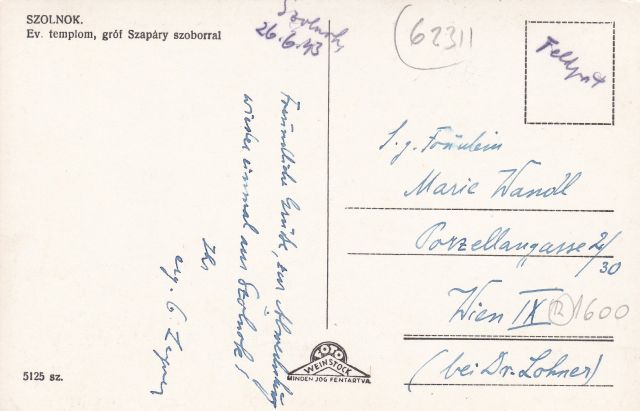 SZOLNOK.
Ev. templom, gróf Szapáry szoborral
Szolnok,
26.6.43
62311
Feldpost
Freundliche Grüße, zur Abwechslung
wieder einmal aus Szolnok!
Ihr
erg. G
S.g. Fräulein
Marie Wandl
Porzellangasse 2/
30
Wien IX
12
1600
(bei Dr. Lohner)
WEINSTOCK
MINDEN JOG FENTARTVA
5125 sz.